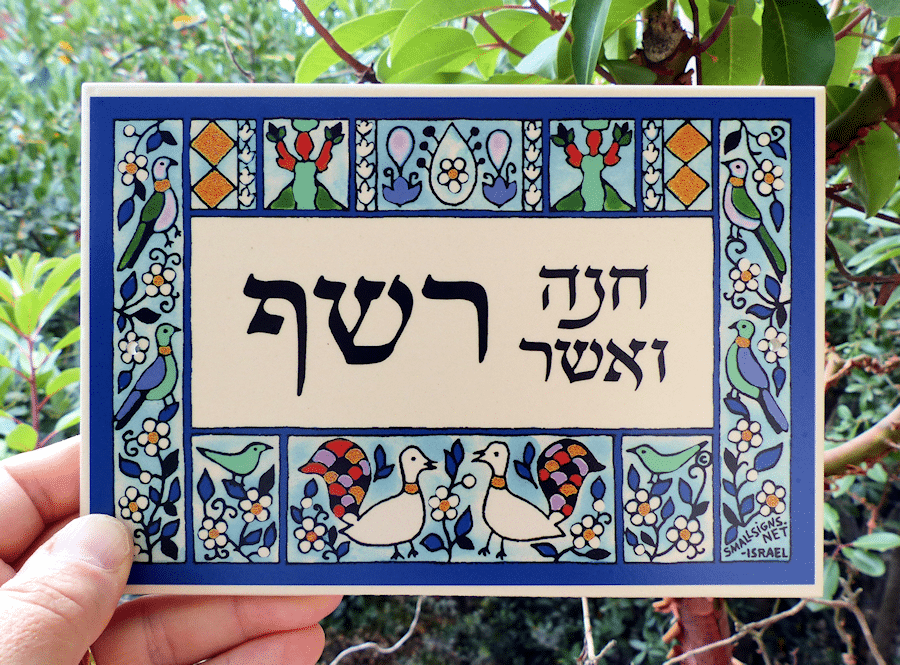 חנה
ואשר
רשף
©
SMALLSIGNS.
NET
-ISRAEL